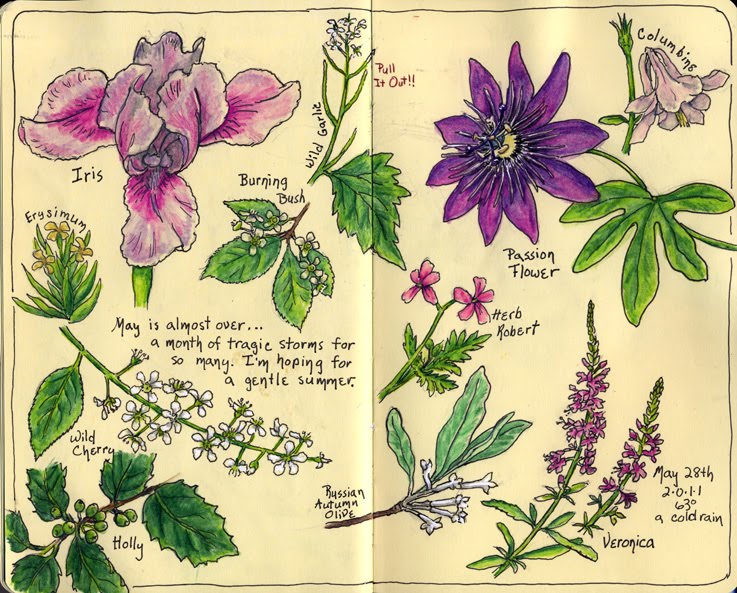 Iris
Wild Garlic
Pull
It Out!!
Columbine
Burning
Bush
Erysimum
Passion
Flower
Herb
Robert
May is almost over...
a month of tragic storms for
so many. I'm hoping for
a gentle summer.
Wild
Cherry
Holly
Russian
Autumn
Olive
Veronica
May 28th
2.0.1.1
63°
a cold rain